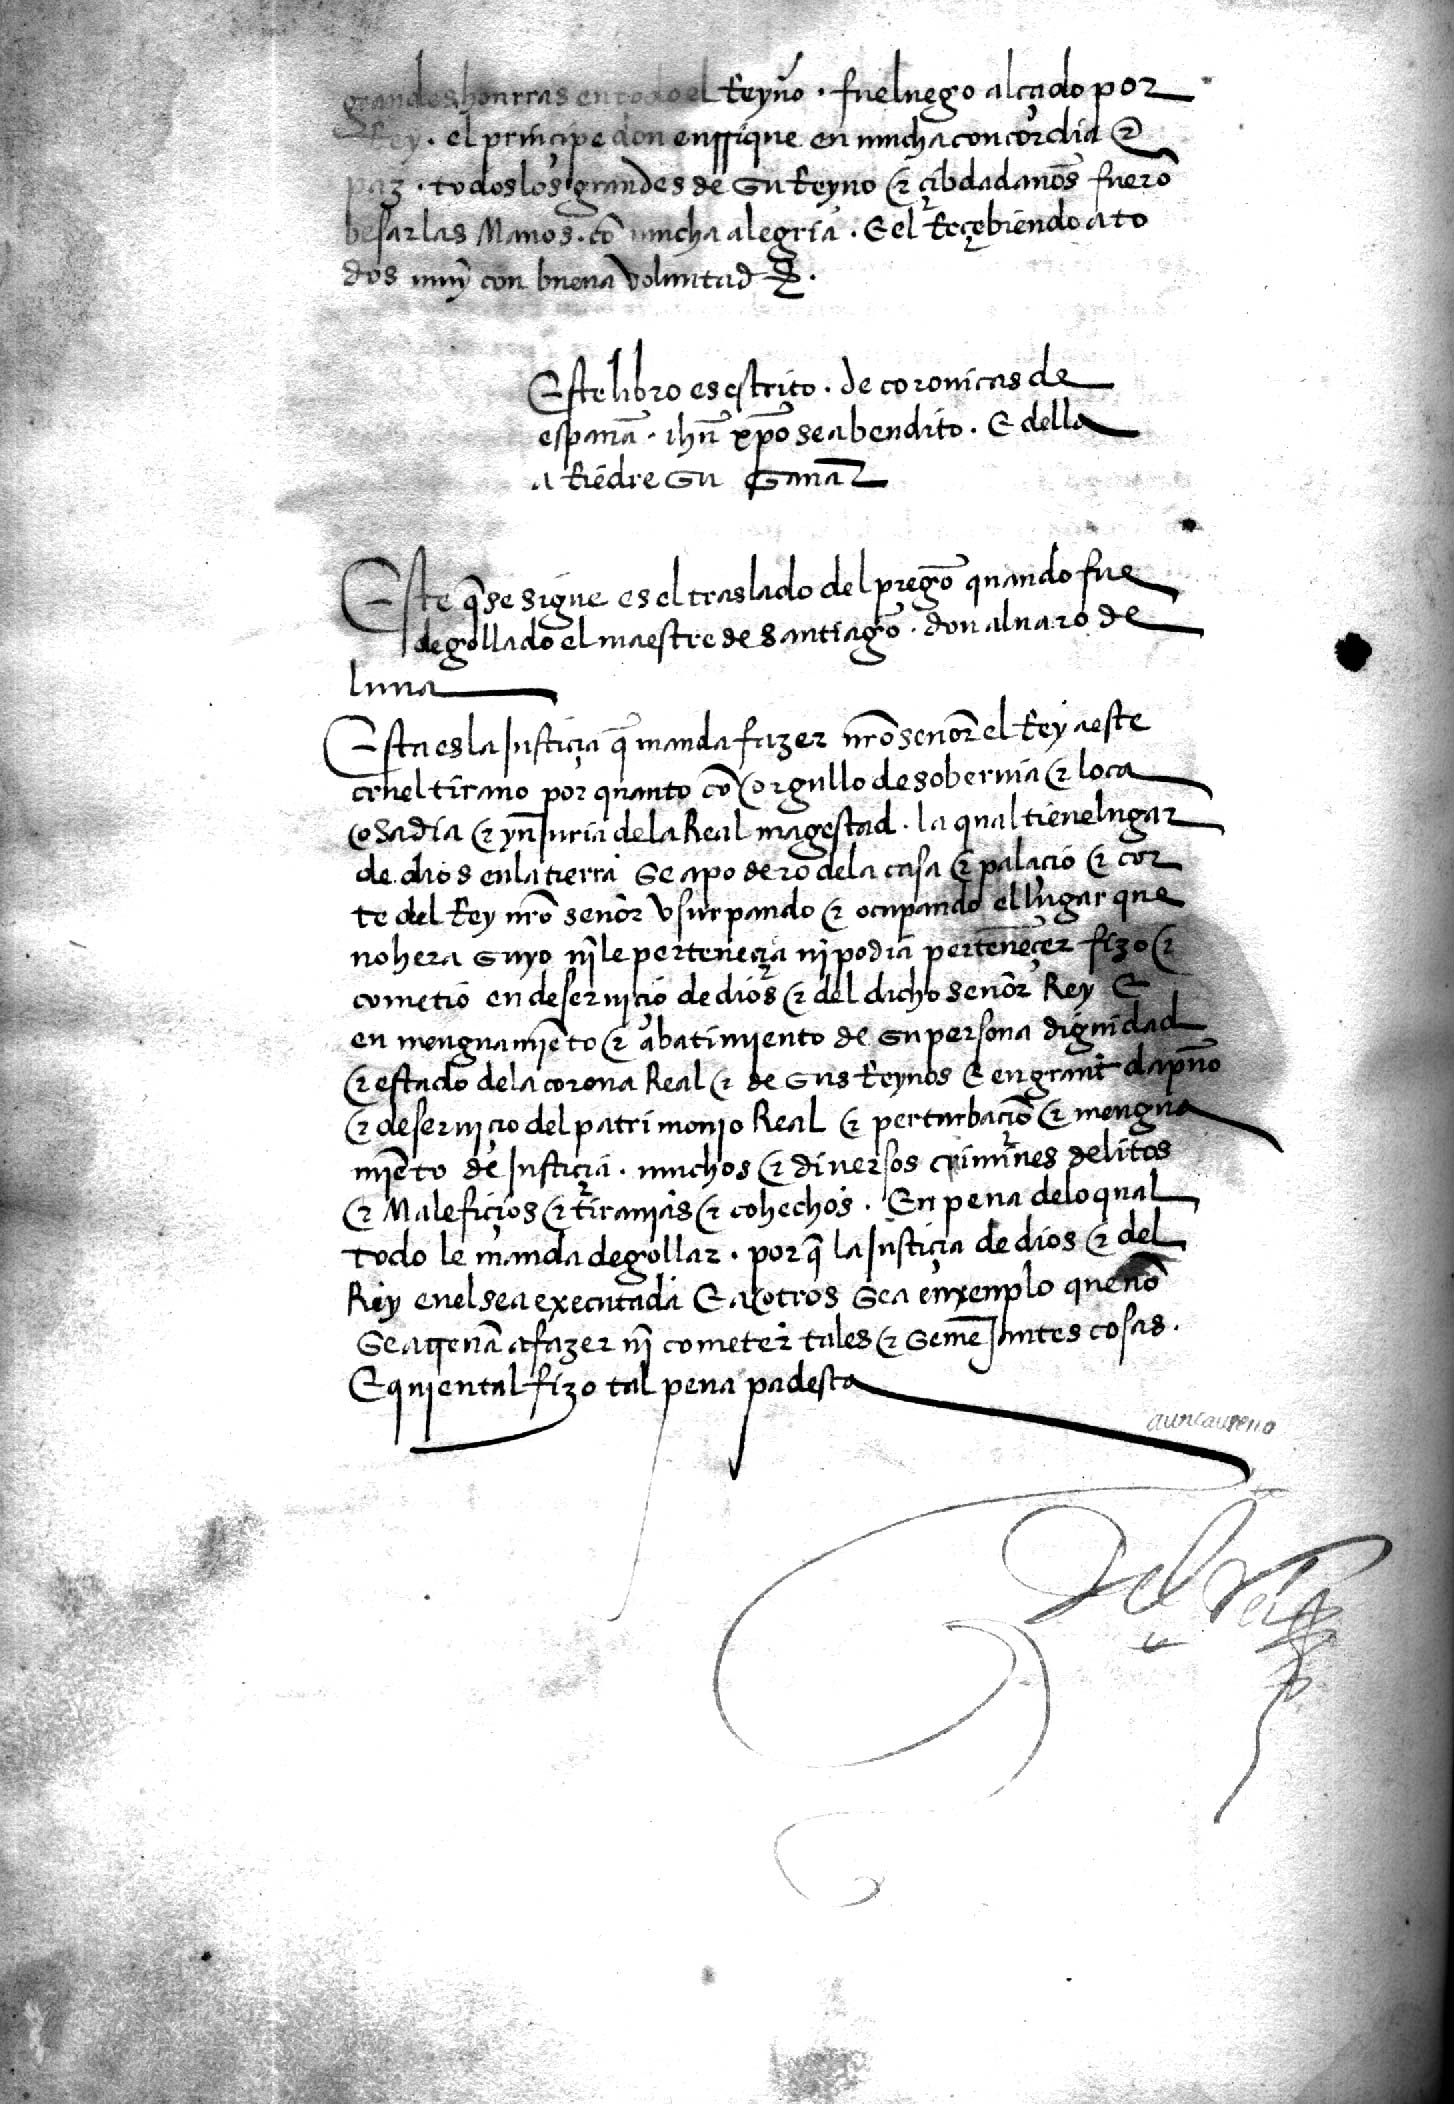 grandes honrras en todo el Reyño . fue luego alçado por
Rey . el prinçipe don enrrique en mucha concordia &
paz . todos los grandes de su Reyno & çibdadanos fuerō
besar las Manos . cō mucha alegria . E el Reçebiendo a to
dos muy con buena voluntad &.
Este libro es escrito . de coronicas de
españa . ihū xp̄o sea bendito . E della
a
su
Este q̄ se sigue es el traslado del pregō quando fue
degollado el maestre de santiago . don aluaro de
luna
Esta es la Justiçia q̄ manda fazer nr̄o señor el Rey a este
cruel tirano por quanto cō orgullo de soberuia & loca
osadia & ynJuria de la Real magestad . la qual tiene lugar
de dios en la tierra se apodero de la casa & palaçio & cor
te del Rey nr̄o señor vsurpando & ocupando el lugar que
no hera suyo nj̄ le perteneçia nj̄ podia perteneçer fizo &
cometio en deserujçio de dios & del dicho señor Rey E
en menguamjēto & abatimjento de su persona dignidad
& estado de la corona Real & de sus Reynos E en grant dapño
& deserujçio del patrimonjo Real & perturbaçiō & mengua
mjēto de Justiçia . muchos & diuersos crimines delitos
& Malefiçios & tiranjas & cohechos . En pena de lo qual
todo le manda degollar . por q̄ la Justiçia de dios & del
Rey en el sea executada E a otros sea enxenplo que nō
se atreuā a fazer nj̄ cometer tales & semeJantes cosas .
E qujen tal fizo tal pena padesca